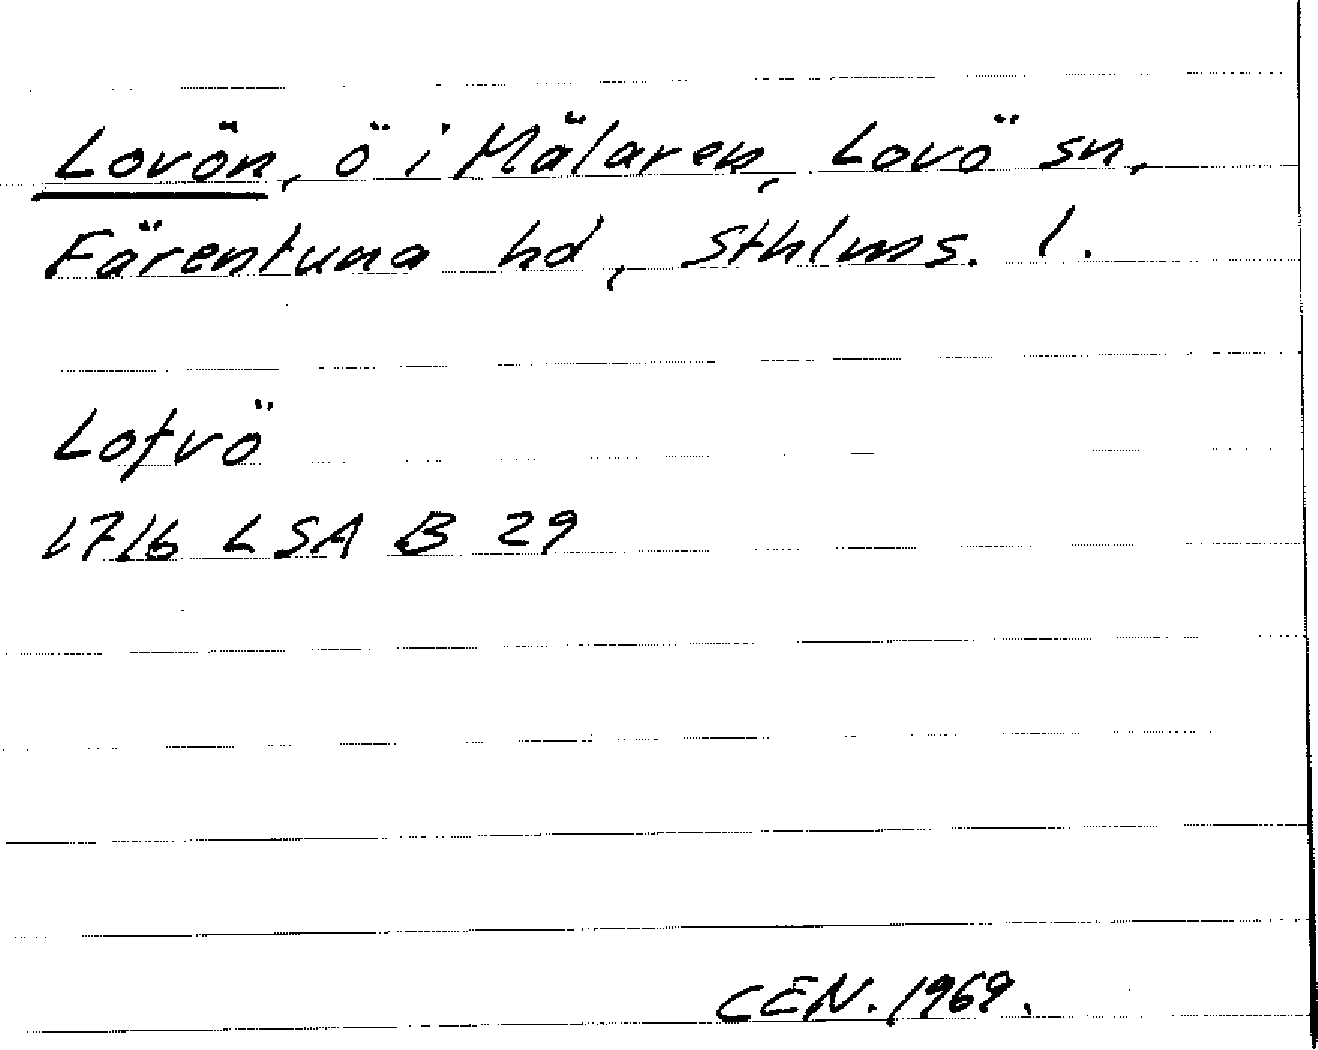 Lovön, ö i Mälaren, Lovö sn,
Färentuna hd, Sthlms. l.
Lofvö
1716 LSA B 29
CEN. 1969.